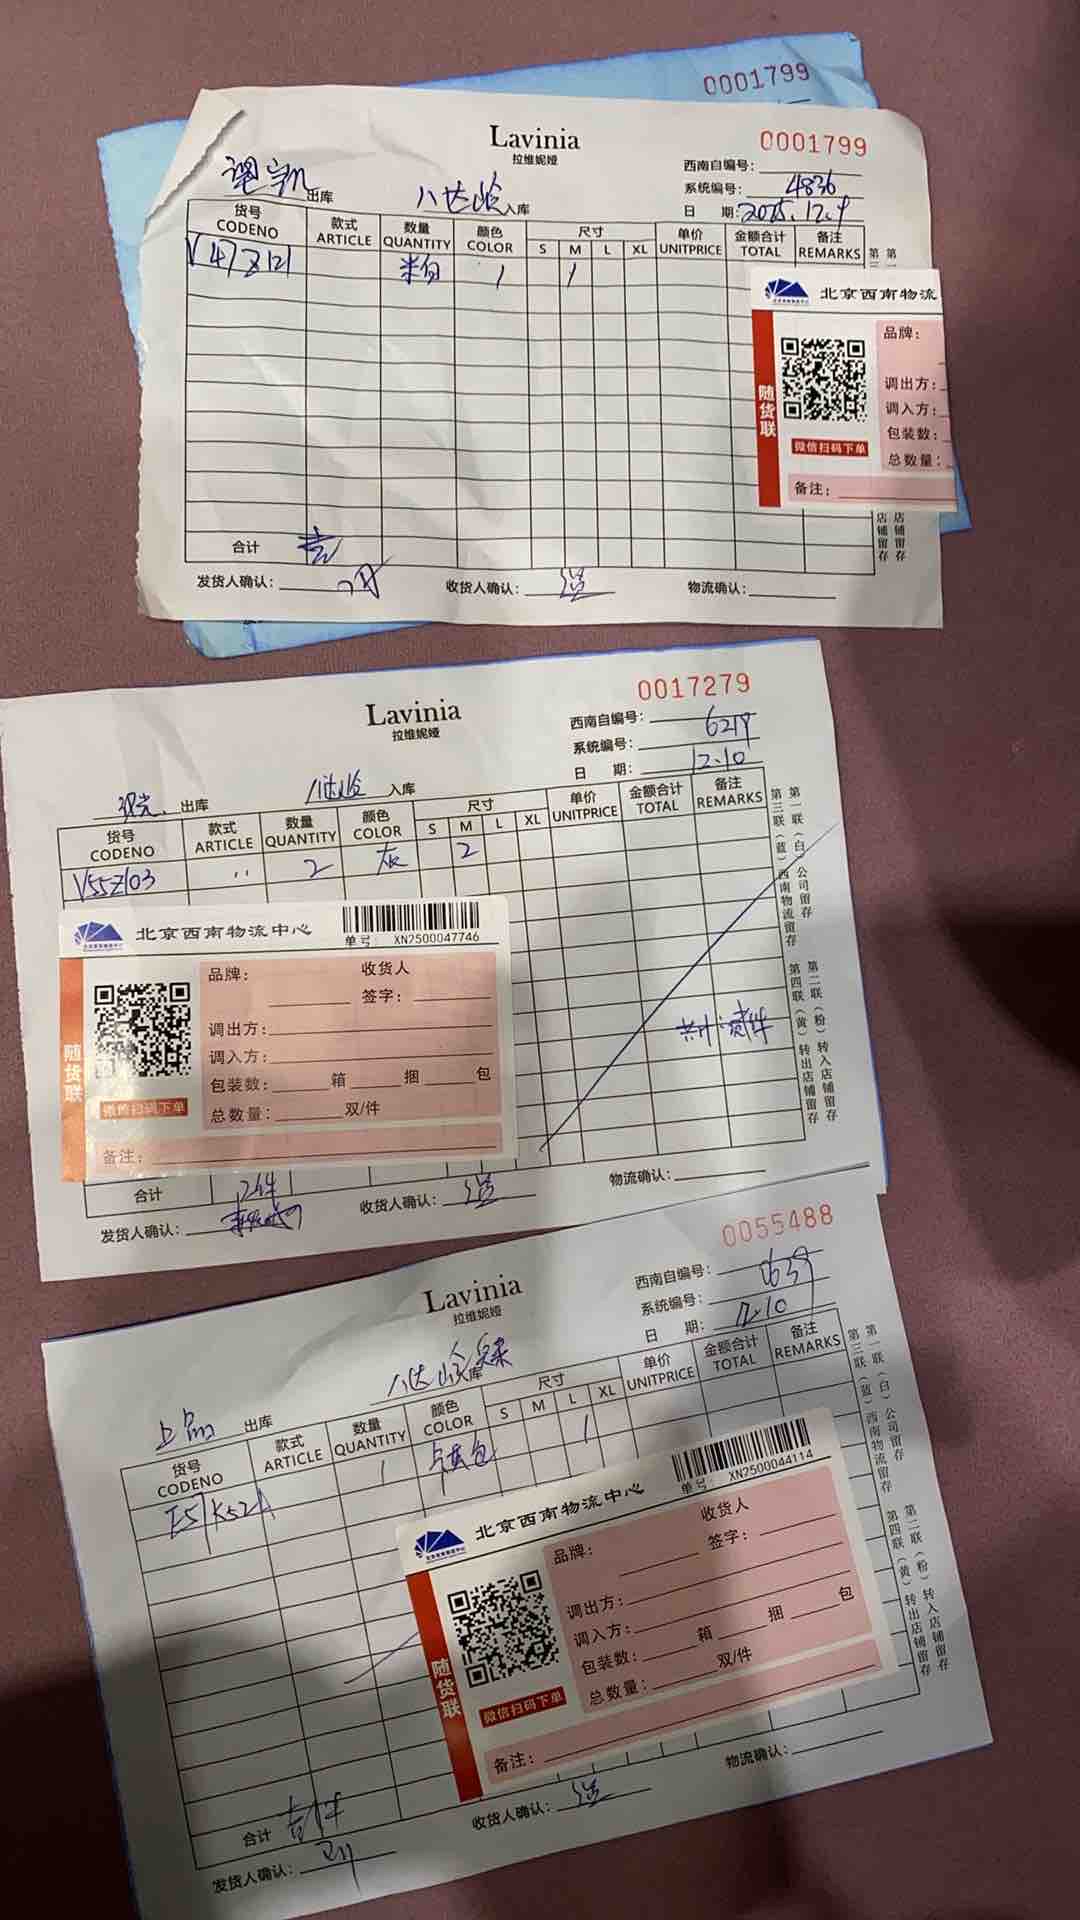 0001799
Lavinia
拉维妮娅
0001799
西南自编号:
系统编号: 4836
日 期: 2025.12.9
出库 八达岭 入库
货号 款式 数量 颜色 尺寸 单价 金额合计 备注
CODENO ARTICLE QUANTITY COLOR S M L XL UNITPRICE TOTAL REMARKS
V47Z121 米白 1 1
北京西南物流
品牌:
调出方:
调入方:
包装数:
总数量:
随货联
微信扫码下单
备注:
店铺留存
店铺留存
合计
发货人确认: 收货人确认: 物流确认:
0017279
Lavinia
拉维妮娅
西南自编号: 6219
系统编号:
日 期: 12.10
出库 八达岭 入库
货号 款式 数量 颜色 尺寸 单价 金额合计 备注
CODENO ARTICLE QUANTITY COLOR S M L XL UNITPRICE TOTAL REMARKS
V55Z103 2 灰 2
第一联(白)公司留存
第三联(蓝)西南物流留存
第二联(粉)转入店铺留存
第四联(黄)转出店铺留存
北京西南物流中心
单号: XN2500047746
品牌: 收货人
签字:
调出方:
调入方:
包装数: 箱 捆 包
总数量: 双/件
随货联
微信扫码下单
备注:
共计:贰件
合计 2件
发货人确认: 收货人确认: 物流确认:
0055488
Lavinia
拉维妮娅
西南自编号: 0639
系统编号:
日 期: 12.10
上品 出库 八达岭 库
货号 款式 数量 颜色 尺寸 单价 金额合计 备注
CODENO ARTICLE QUANTITY COLOR S M L XL UNITPRICE TOTAL REMARKS
E51K52A 1 1
第一联(白)公司留存
第三联(蓝)西南物流留存
第二联(粉)转入店铺留存
第四联(黄)转出店铺留存
北京西南物流中心
单号: XN2500044114
品牌: 收货人
签字:
调出方:
调入方:
包装数: 箱 捆 包
总数量: 双/件
随货联
微信扫码下单
备注:
合计 壹件
发货人确认: 收货人确认: 物流确认: